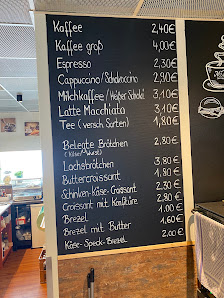 Kaffee 2,40€
Kaffee groß 4,00€
Espresso 2,30€
Cappuccino/Schokoccino 2,90€
Milchkaffee/Heißer Schoko 3,10€
Latte Macchiato 3,10€
Tee (versch. Sorten) 1,80€
Belegte Brötchen 2,80€
(Käse/Wurst)
Lachsbrötchen 3,80€
Buttercroissant 1,80€
Schinken-Käse-Croissant 2,30€
Croissant mit Konfitüre 2,80€
Brezel 1,00€
Brezel mit Butter 1,60€
Käse-Speck-Brezel 2,00€